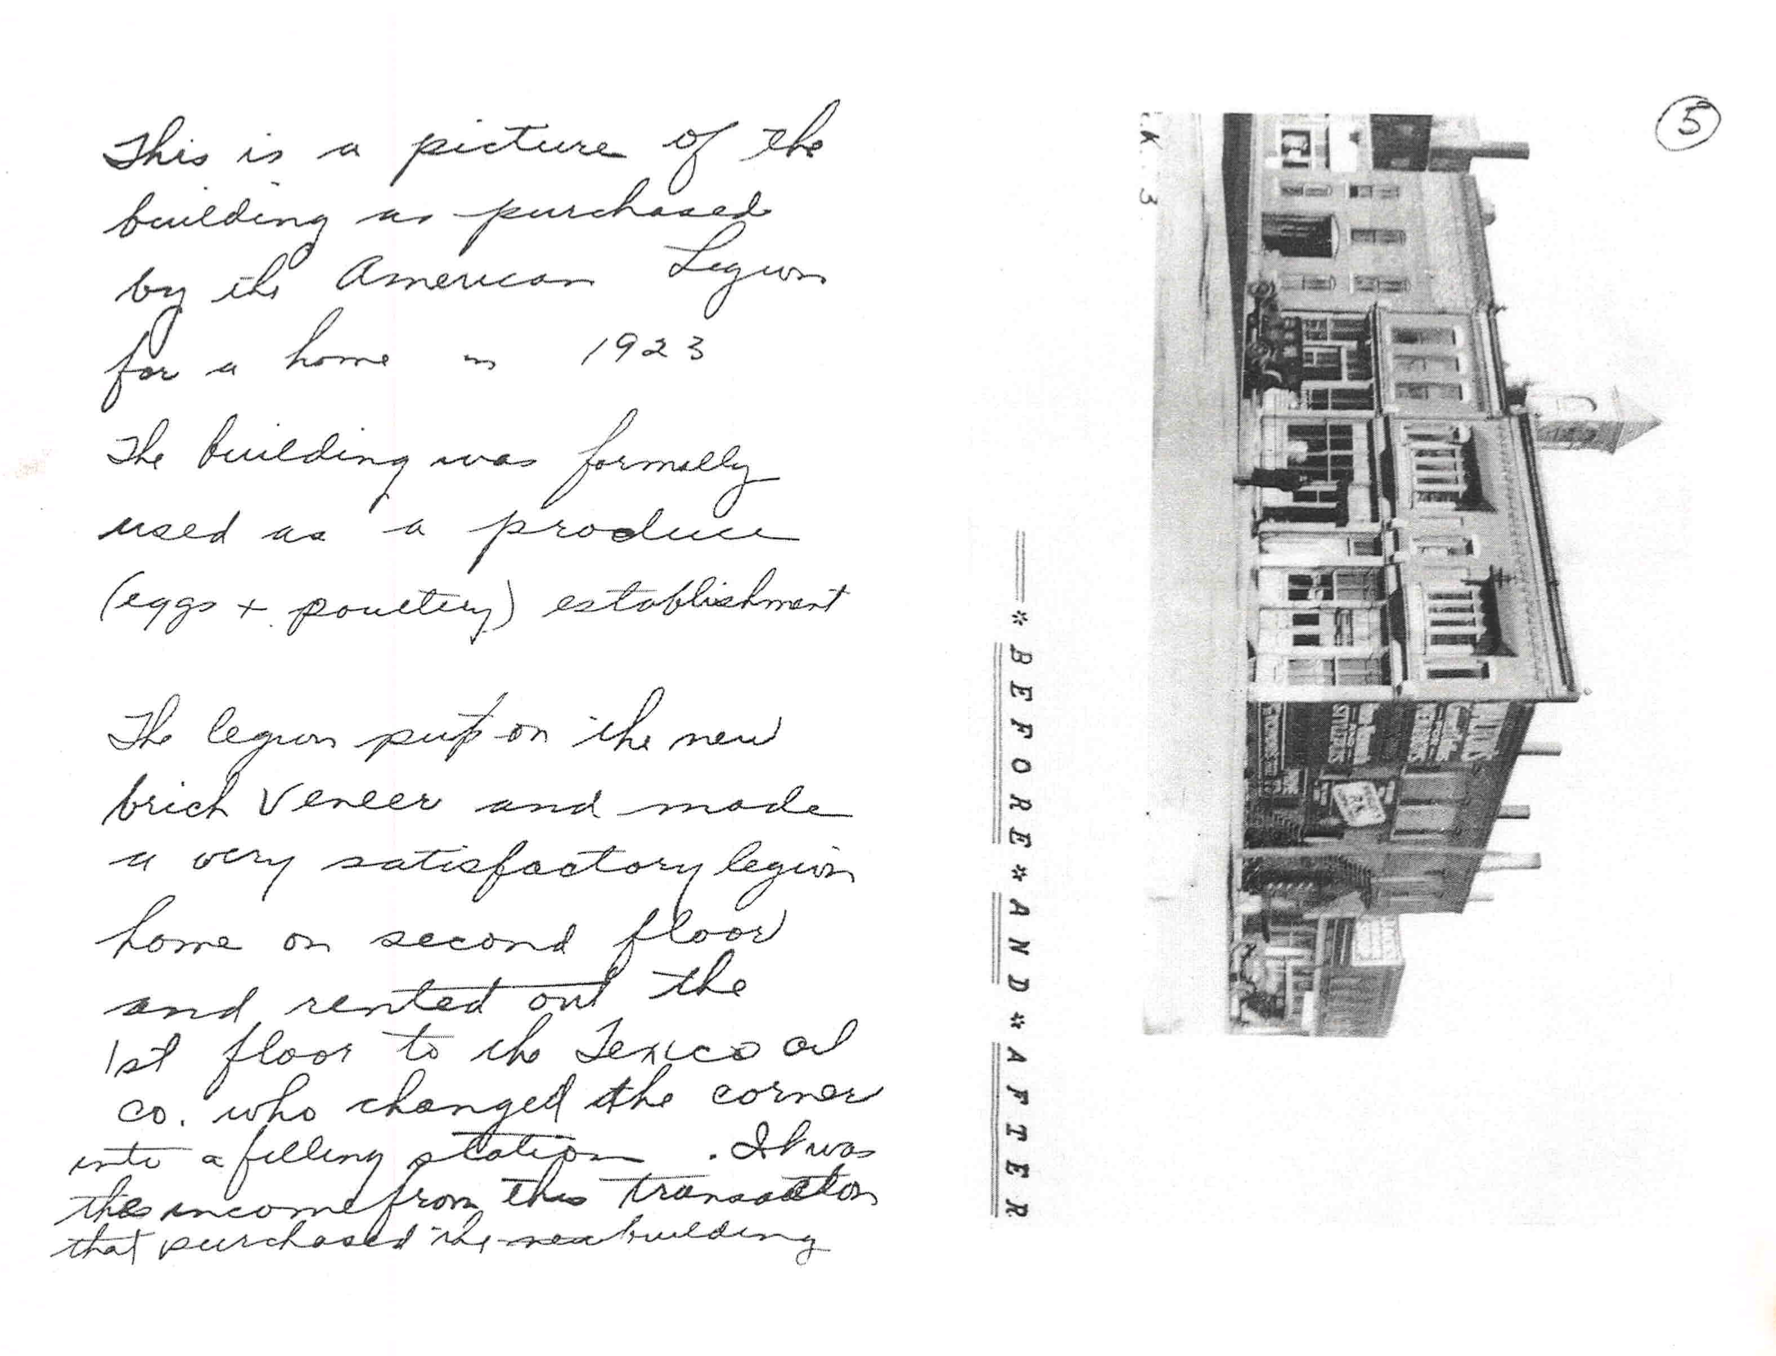 This is a picture of the
building as purchased
by the American Legion
for a home in 1923
The building was formally
used as a produce
(eggs + poultery) establishment
The legion put on the new
brick Veneer and made
a very satisfactory legion
home on second floor
and rented out the
1st floor to the Texico oil
co. who changed the corner
into a filling station. It was
the income from this transaction
that purchased the new building
* BEFORE * AND * AFTER
5